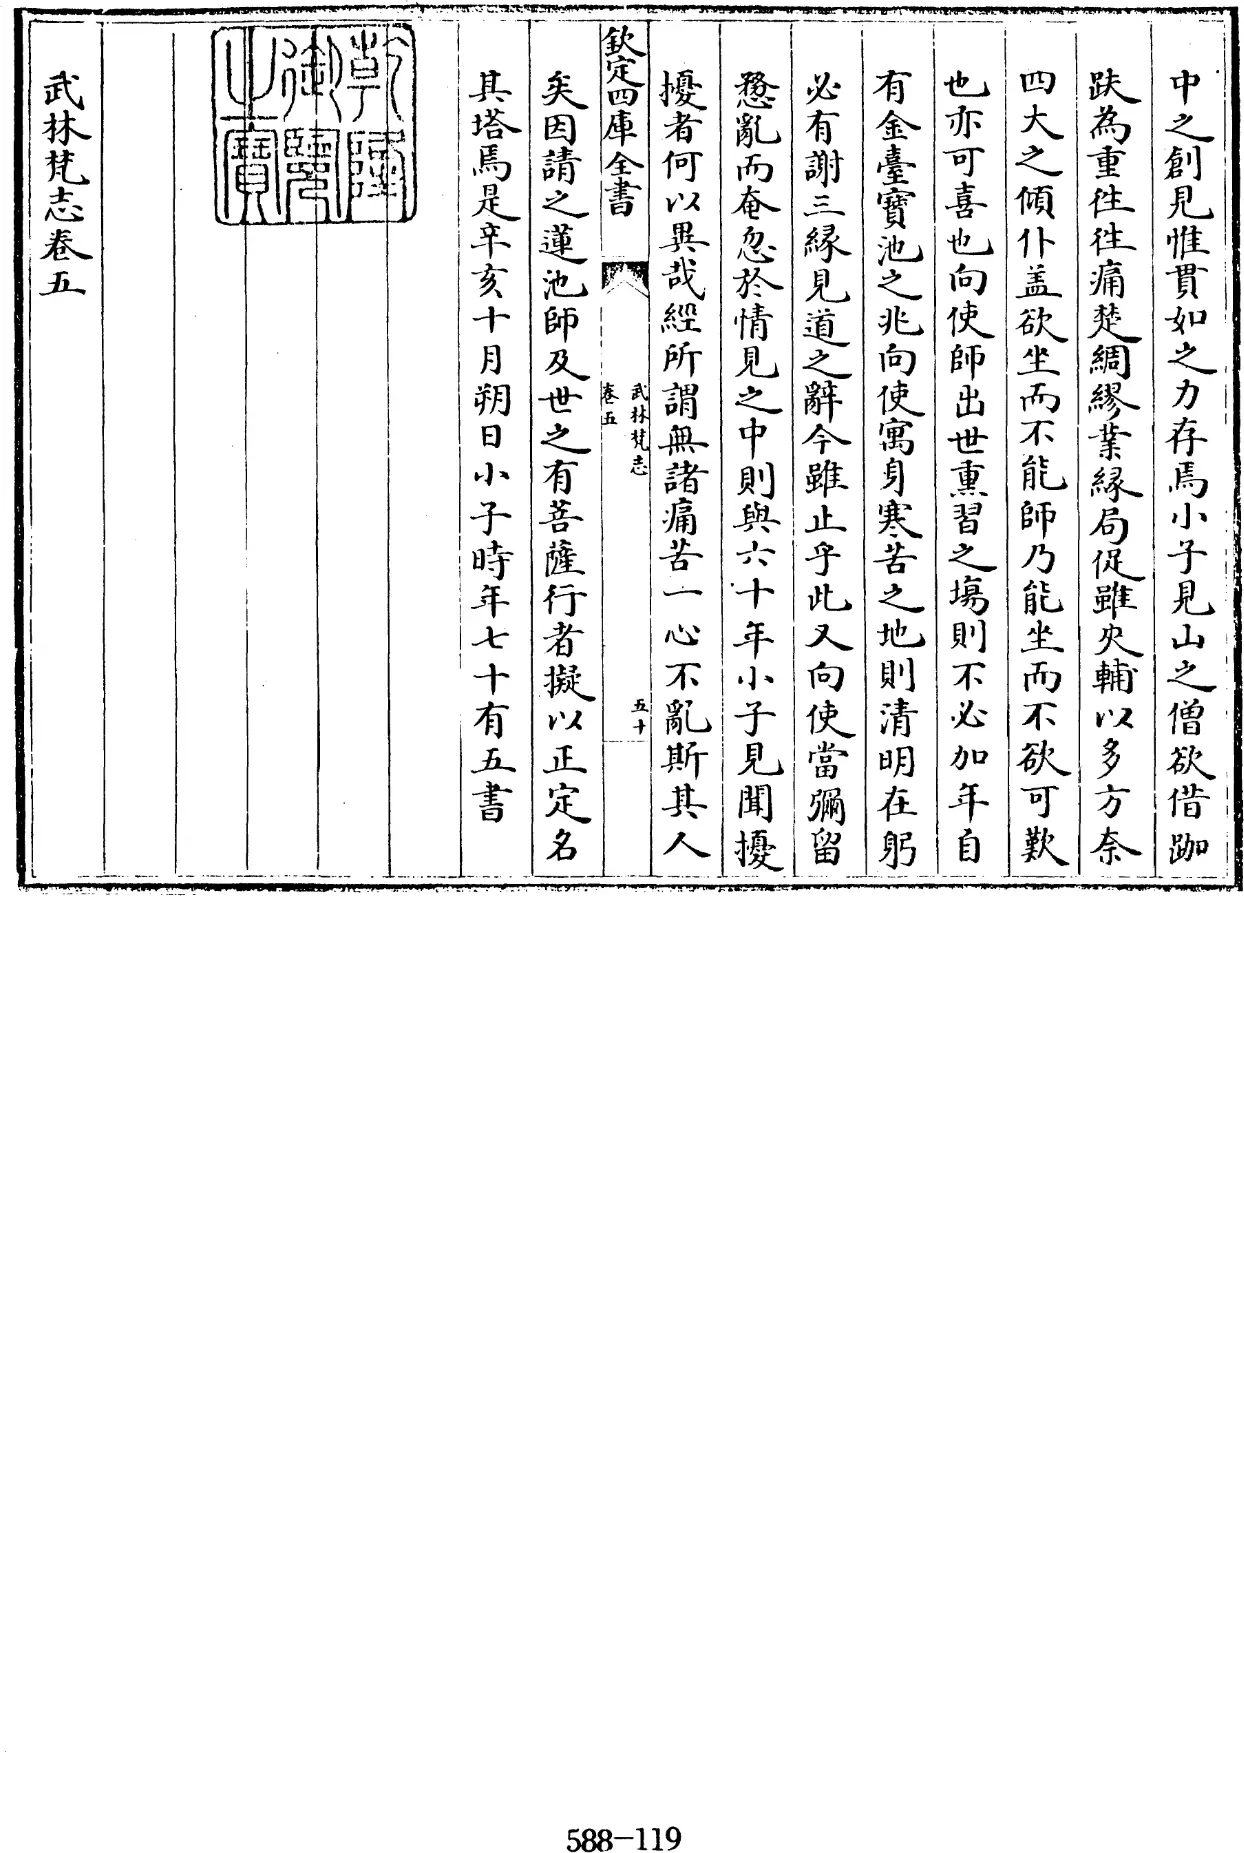 中之創見惟貫如之力存焉小子見山之僧欲借跏
趺為重徃徃痛楚綢繆業縁局促雖夾輔以多方奈
四大之傾仆盖欲坐而不能師乃能坐而不欲可歎
也亦可喜也向使師出世熏習之塲則不必加年自
有金臺寶池之兆向使寓身寒苦之地則清明在躬
必有謝三縁見道之辭今雖止乎此又向使當彌留
憗亂而奄忽於情見之中則與六十年小子見聞擾
擾者何以異哉經所謂無諸痛苦一心不亂斯其人
欽定四庫全書
武林梵志
卷五
五十
矣因請之蓮池師及世之有菩薩行者擬以正定名
其塔焉是辛亥十月朔日小子時年七十有五書
乾隆御覽之寶
武林梵志卷五
588-119